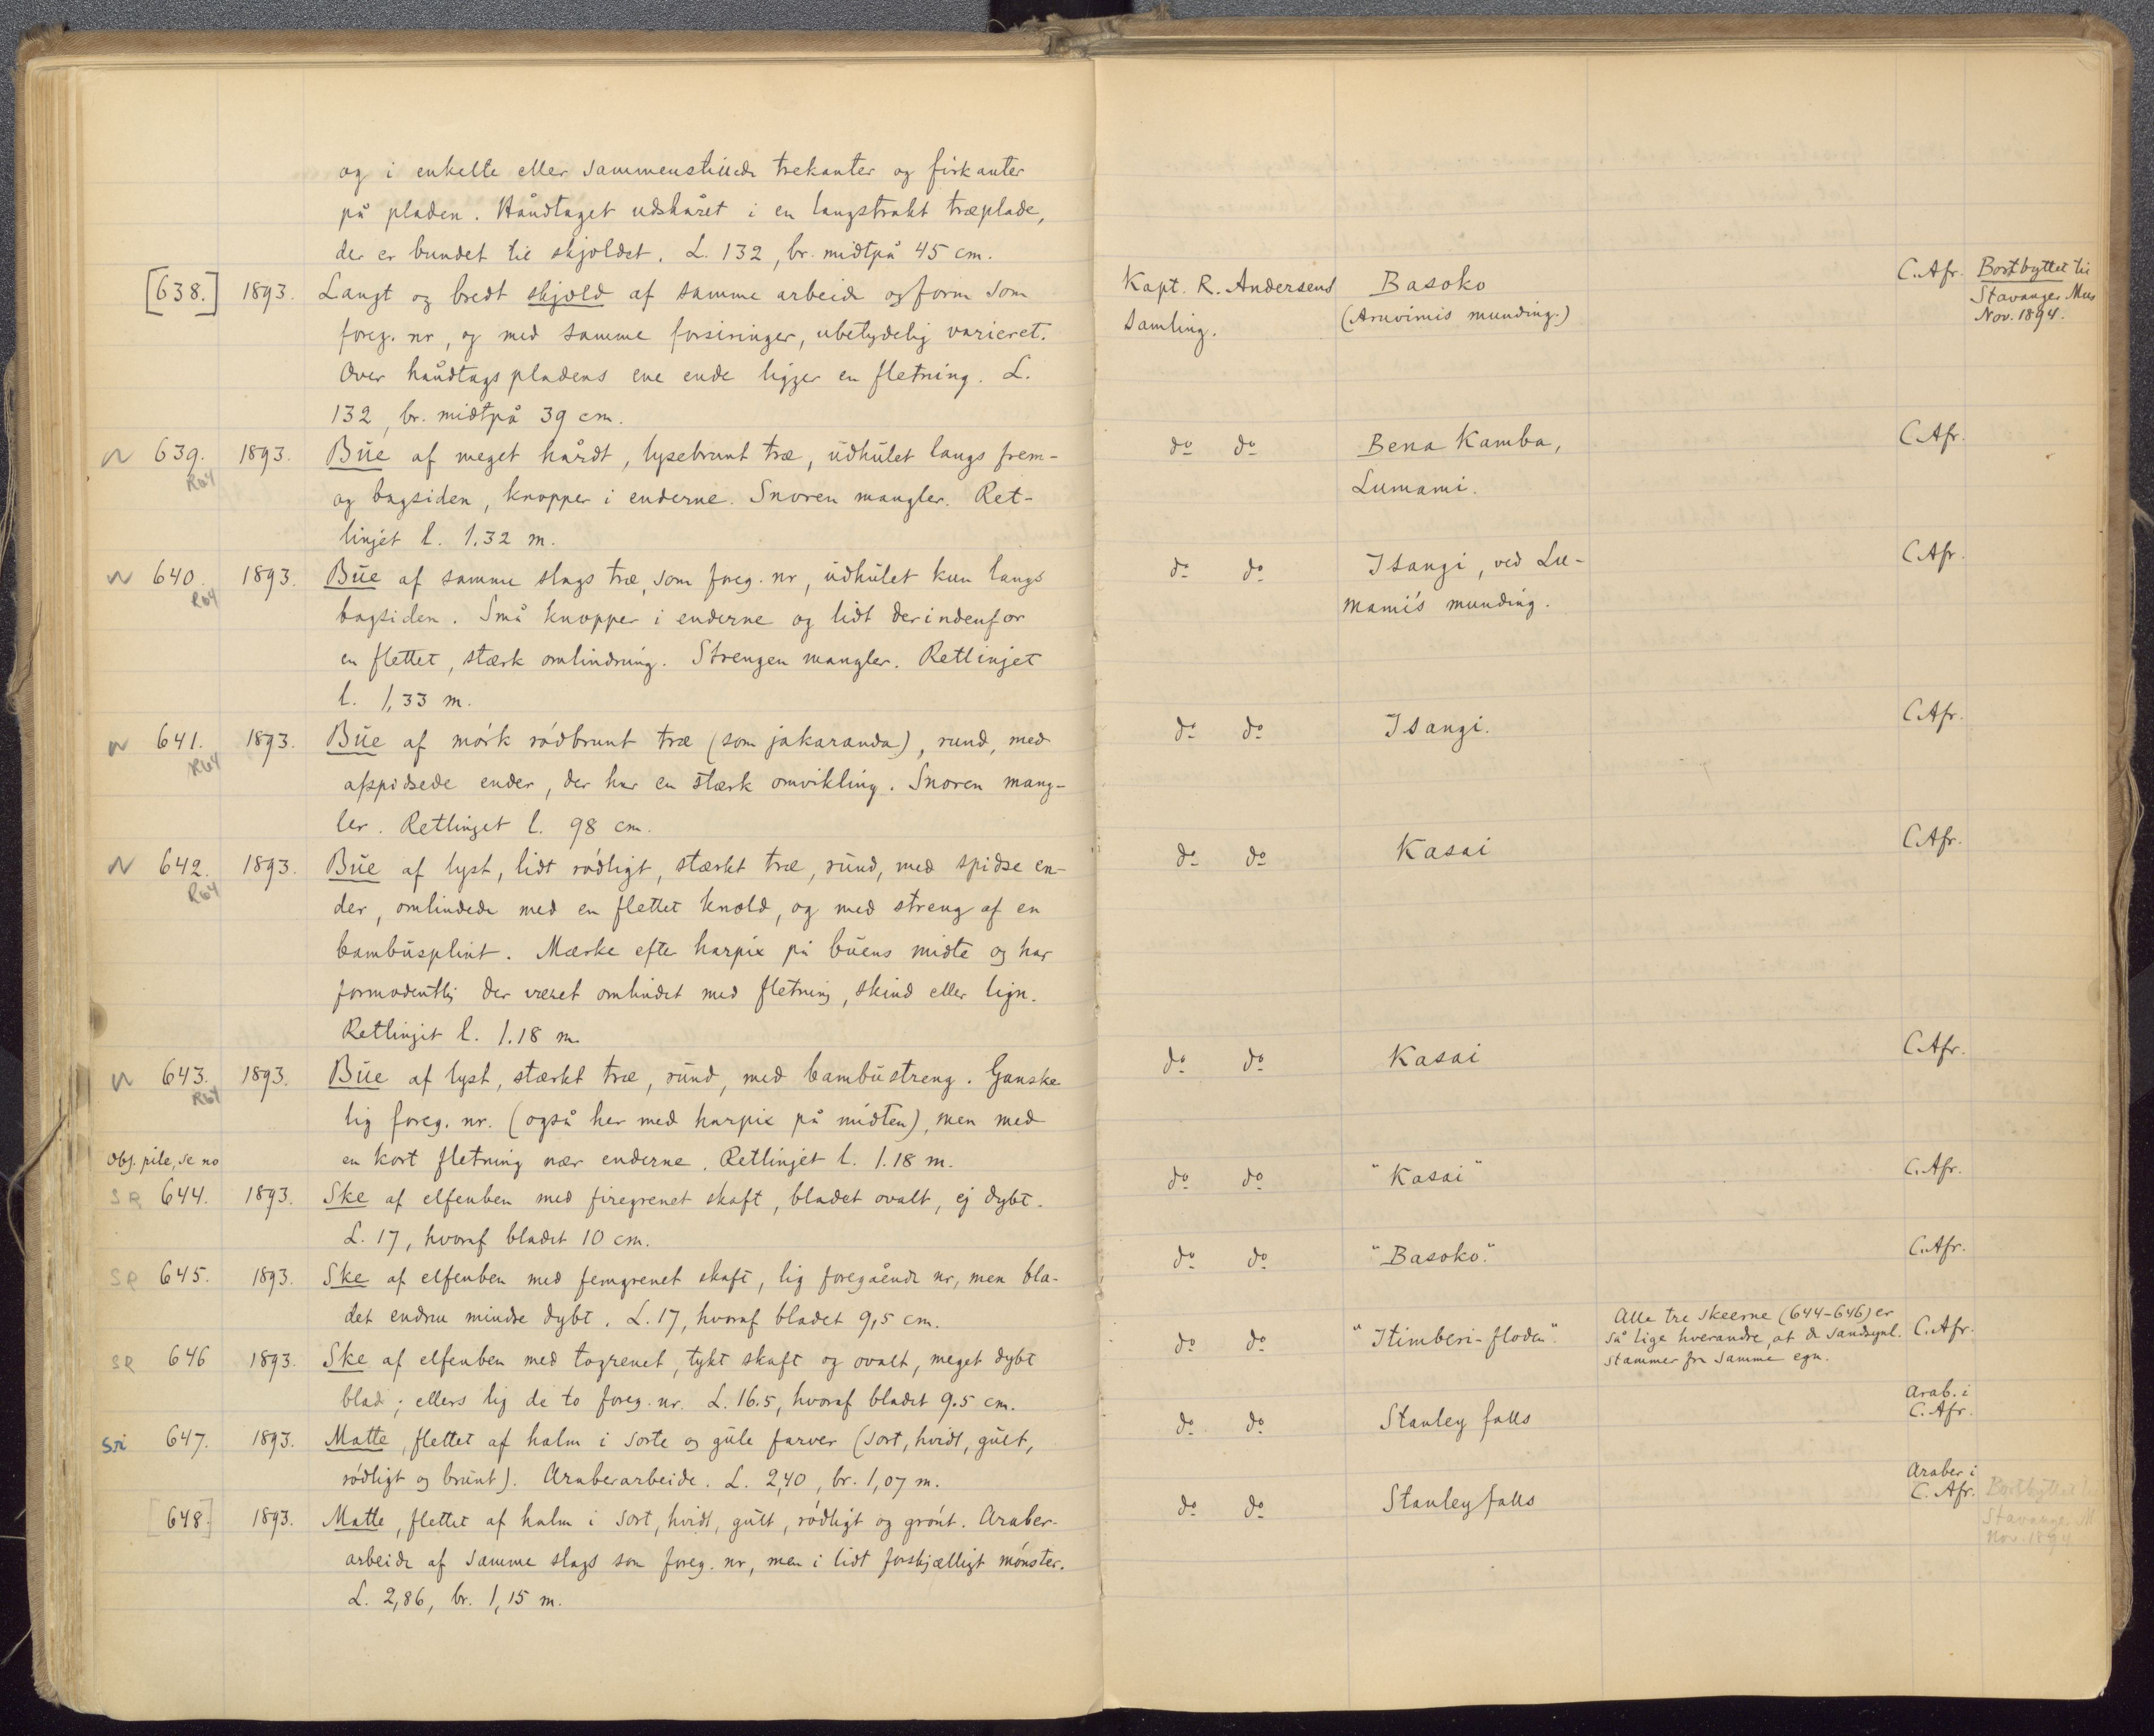 og i enkelte eller sammenstillede trekanter og firkanter
på pladen. Håndtaget udskåret i en langstrakt træplade,
der er bundet til skjoldet. L. 132, br. midtpå 45 cm.
[638.] 1893. Langt og bredt skjold af samme arbeide og form som Kapt. R. Andersens Basoko C. Afr. Bortbyttet til
foreg. nr, og med samme forsiringer, ubetydelig varieret. Samling. (Aruvimis munding.) Stavanger Mus
Nov. 1894.
Over håndtagspladens ene ende ligger en fletning. L.
132, br. midtpå 39 cm.
N 639. 1893. Bue af meget hårdt, lysebrunt træ, udhulet langs frem- do do Bena Kamba, C. Afr.
R64
og bagsiden, knopper i enderne. Snoren mangler. Ret- Lumami.
linjet l. 1.32 m.
N 640. 1893. Bue af samme slags træ, som foreg. nr, udhulet kun langs do do Isangi, ved Lu- C. Afr.
R64
bagsiden. Små knopper i enderne og lidt derindenfor mami's munding.
en flettet, stærk omlindning. Strengen mangler. Retlinjet
l. 1,33 m.
N 641. 1893. Bue af mørk rødbrunt træ (som jakaranda), rund, med do do Isangi. C. Afr.
R64
afspidsede ender, der har en stærk omvikling. Snoren mang-
ler. Retlinjet l. 98 cm.
N 642. 1893. Bue af lyst, lidt rødligt, stærkt træ, rund, med spidse en- do do Kasai C. Afr.
R64
der, omlindede med en flettet knold, og med streng af en
bambusplint. Mærke efter harpix på buens midte og har
formodentlig der været omlindet med fletning, skind eller lign.
Retlinjet l. 1.18 m.
N 643. 1893. Bue af lyst, stærkt træ, rund, med bambustreng. Ganske do do Kasai C. Afr.
R64
lig foreg. nr. (også her med harpix på midten), men med
Obs. pile, se no en kort fletning nær enderne. Retlinjet l. 1.18 m.
SR 644. 1893. Ske af elfenben med firegrenet skaft, bladet ovalt, ej dybt. do do "Kasai" C. Afr.
L. 17, hvoraf bladet 10 cm.
SR 645. 1893. Ske af elfenben med femgrenet skaft, lig foregående nr, men bla- do do "Basoko". C. Afr.
det endnu mindre dybt. L. 17, hvoraf bladet 9,5 cm.
SR 646 1893. Ske af elfenben med togrenet, tykt skaft og ovalt, meget dybt do do "Itimberi-floden". Alle tre skeerne (644-646) er
så lige hverandre, at de sandsynl. C. Afr.
stammer fra samme egn.
blad; ellers lig de to foreg. nr. L. 16.5, hvoraf bladet 9.5 cm.
sri 647. 1893. Matte, flettet af halm i sorte og gule farver (sort, hvidt, gult, do do Stanley falls Arab. i
C. Afr.
rødligt og brunt). Araberarbeide. L. 2,40, br. 1,07 m.
[648.] 1893. Matte, flettet af halm i sort, hvidt, gult, rødligt og grønt. Araber- do do Stanleyfalls Araber i
C. Afr. Bortbyttet til
Stavanger M
Nov. 1894
arbeide af samme slags som foreg. nr, men i lidt forskjælligt mønster.
L. 2,86, br. 1,15 m.